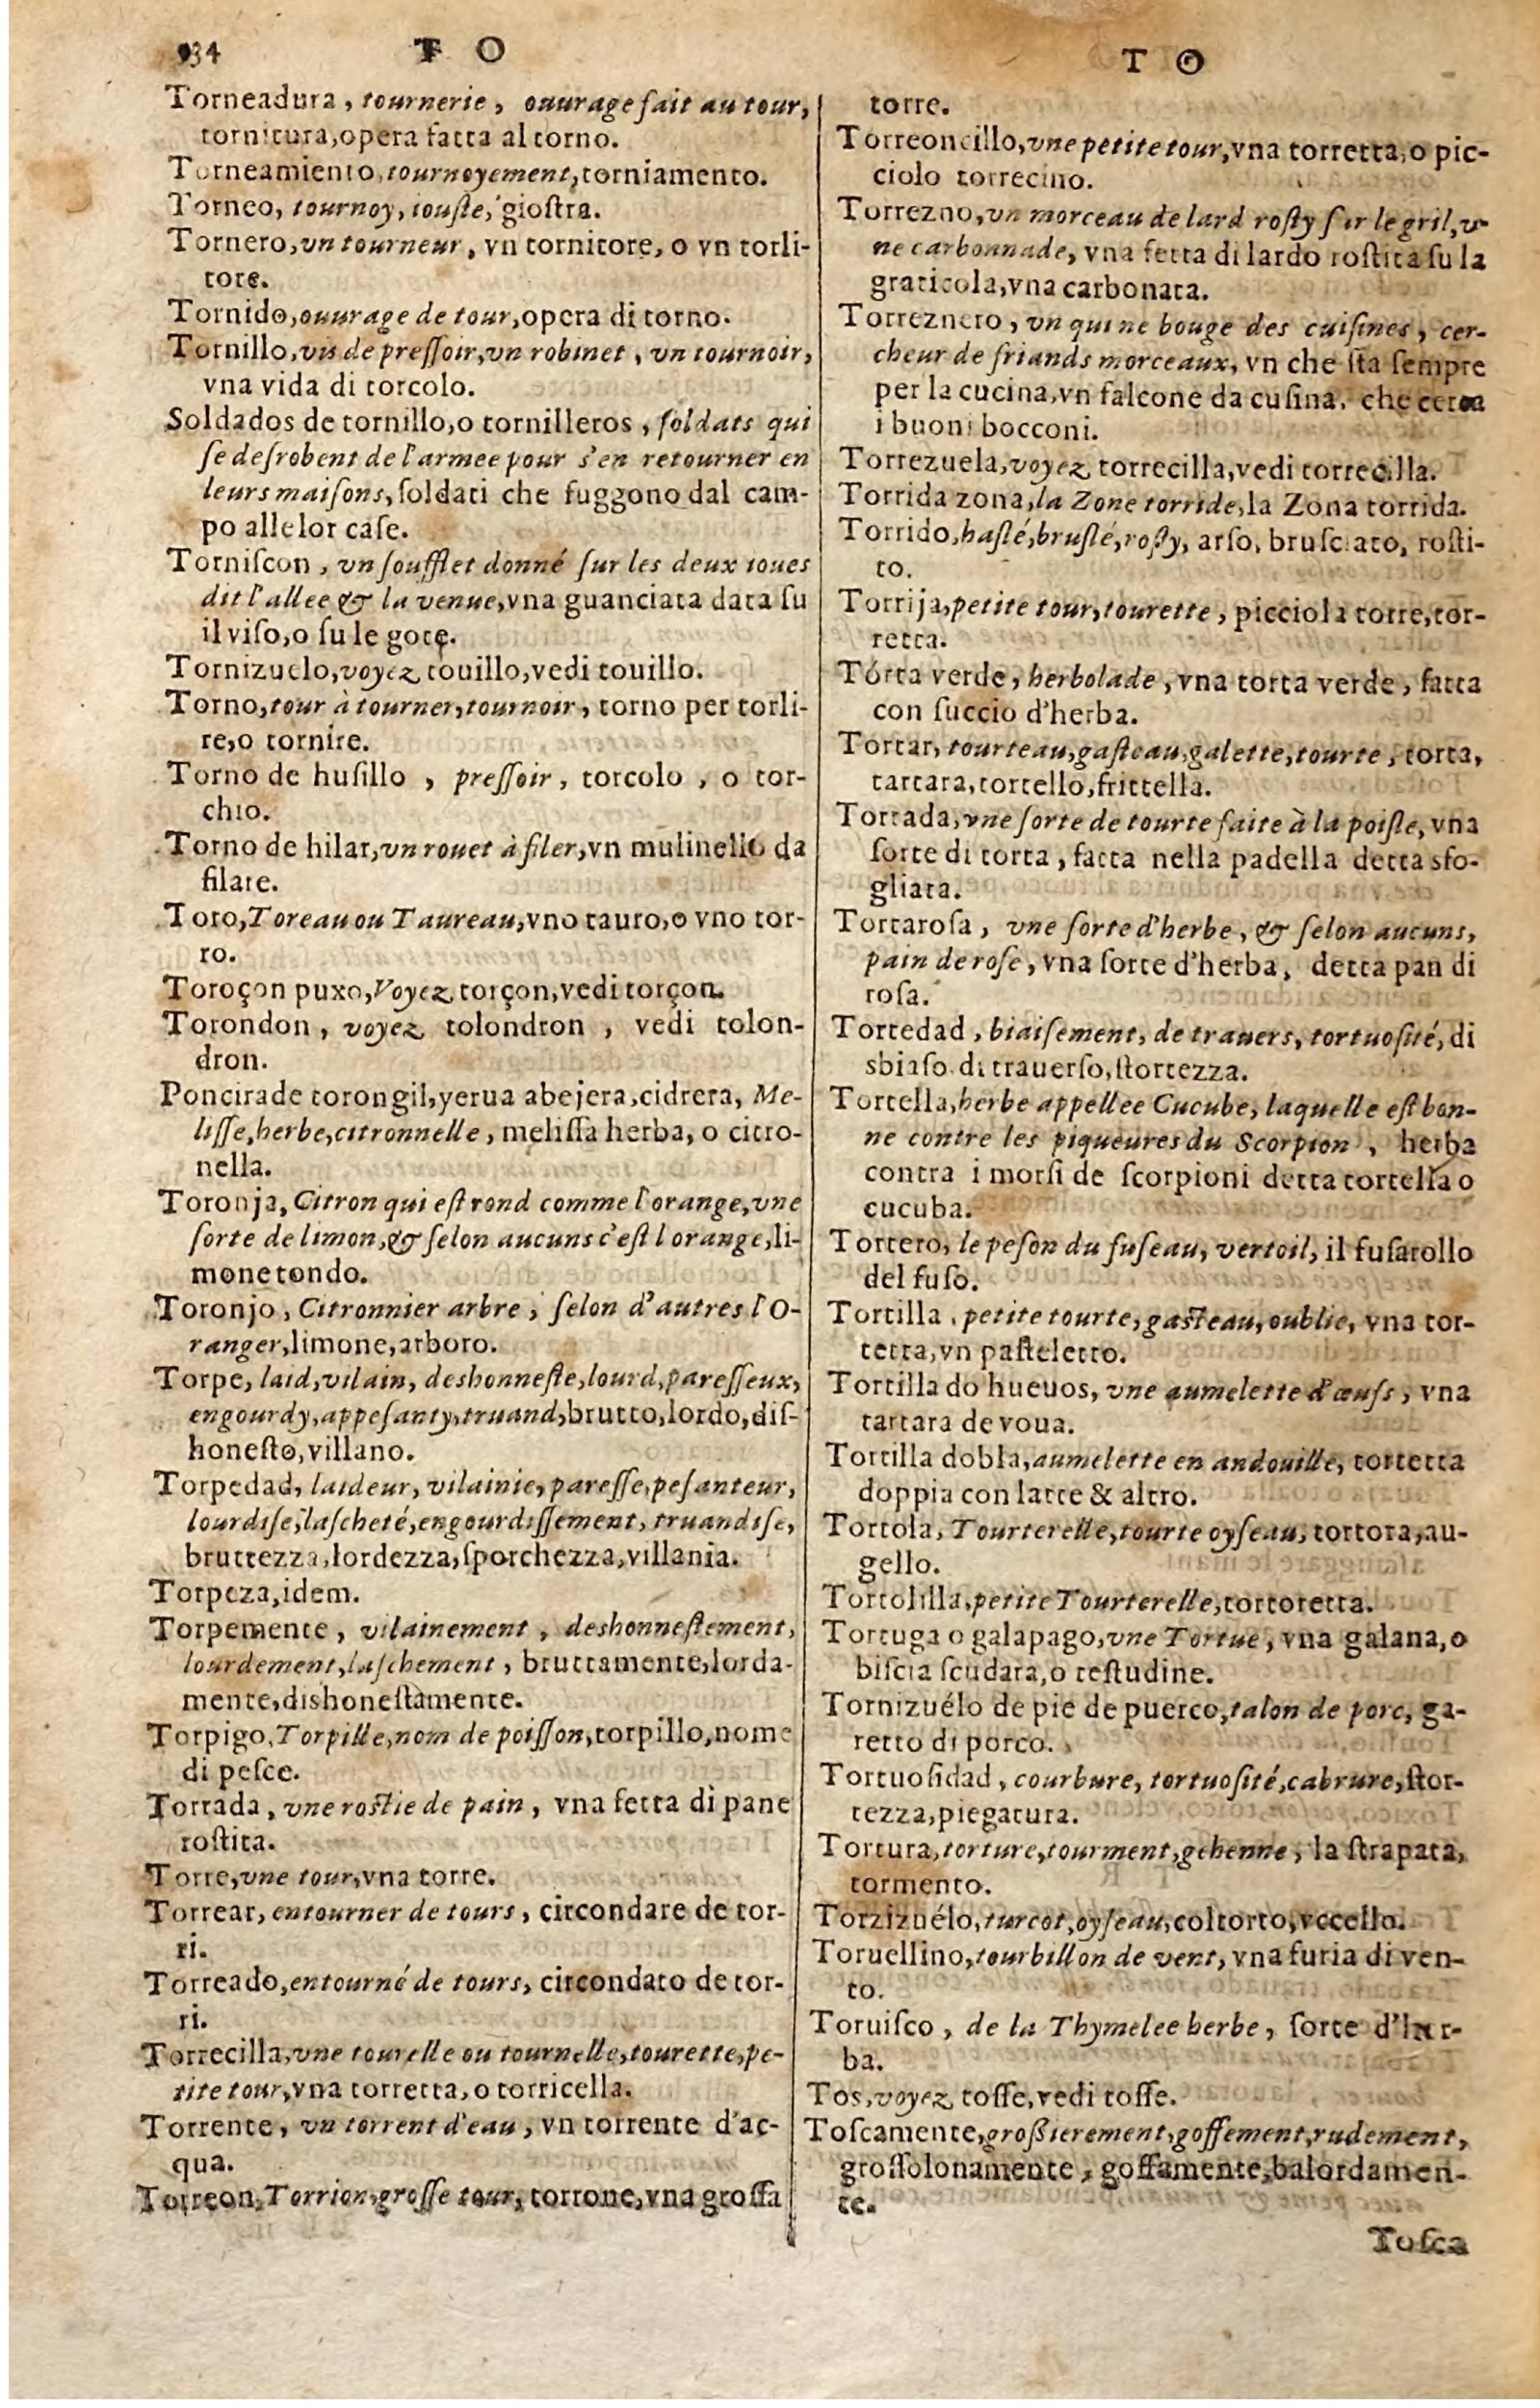 934 T O
Torneadura, tournerie, ouurage fait au tour,
tornitura, opera fatta al torno.
Torneamiento, tournoyement, torniamento.
Torneo, tournoy, iouſte, gioſtra.
Tornero, vn tourneur, vn tornitore, o vn torli-
tore.
Tornido, ouurage de tour, opera di torno.
Tornillo, vis de preſſoir, vn robinet, vn tournoir,
vna vida di torcolo.
Soldados de tornillo, o tornilleros, ſoldats qui
ſe deſrobent de l'armee pour s'en retourner en
leurs maiſons, ſoldati che fuggono dal cam-
po alle lor caſe.
Torniſcon, vn ſoufflet donné ſur les deux ioues
dit l'allee & la venue, vna guanciata data ſu
il viſo, o ſu le gote.
Tornizuelo, voyez touillo, vedi touillo.
Torno, tour à tourner, tournoir, torno per torli-
re, o tornire.
Torno de huſillo, preſſoir, torcolo, o tor-
chio.
Torno de hilar, vn rouet à filer, vn mulinello da
filare.
Toro, Toreau ou Taureau, vno tauro, o vno tor-
ro.
Toroçon puxo, Voyez torçon, vedi torçon.
Torondon, voyez tolondron, vedi tolon-
dron.
Poncirade torongil, yerua abejera, cidrera, Me-
liſſe, herbe, citronnelle, meliſſa herba, o citro-
nella.
Toronja, Citron qui eſt rond comme l'orange, vne
ſorte de limon, & ſelon aucuns c'eſt l orange, li-
mone tondo.
Toronjo, Citronnier arbre, ſelon d'autres l'O-
ranger, limone, arboro.
Torpe, laid, vilain, deshonneſte, lourd, pareſſeux,
engourdy, appeſanty, truand, brutto, lordo, diſ-
honeſto, villano.
Torpedad, laideur, vilainie, pareſſe, peſanteur,
lourdiſe, laſcheté, engourdiſſement, truandiſe,
bruttezza, lordezza, ſporchezza, villania.
Torpeza, idem.
Torpemente, vilainement, deshonneſtement,
lourdement, laſchement, bruttamente, lorda-
mente, dishoneſtamente.
Torpigo, Torpille, nom de poiſſon, torpillo, nome
di peſce.
Torrada, vne roſtie de pain, vna fetta di pane
roſtita.
Torre, vne tour, vna torre.
Torrear, entourner de tours, circondare de tor-
ri.
Torreado, entourné de tours, circondato de tor-
ri.
Torrecilla, vne tourelle ou tournelle, tourette, pe-
tite tour, vna torretta, o torricella.
Torrente, vn torrent d'eau, vn torrente d'ac-
qua.
Torreon, Torrion, groſſe tour, torrone, vna groſſa
T O
torre.
Torreoncillo, vne petite tour, vna torretta, o pic-
ciolo torrecino.
Torrezno, vn morceau de lard roſty ſur le gril, v-
ne carbonnade, vna fetta di lardo roſtita ſu la
graticola, vna carbonata.
Torreznero, vn qui ne bouge des cuiſines, cer-
cheur de friands morceaux, vn che ſta ſempre
per la cucina, vn falcone da cuſina, che cerca
i buoni bocconi.
Torrezuela, voyez torrecilla, vedi torrecilla.
Torrida zona, la Zone torride, la Zona torrida.
Torrido, haſlé, bruſlé, roſty, arſo, bruſciato, roſti-
to.
Torrija, petite tour, tourette, picciola torre, tor-
retta.
Tórta verde, herbolade, vna torta verde, fatta
con ſuccio d'herba.
Tortar, tourteau, gaſteau, galette, tourte, torta,
tartara, tortello, frittella.
Tortada, vne ſorte de tourte faite à la poiſle, vna
ſorte di torta, fatta nella padella detta sfo-
gliata.
Tortaroſa, vne ſorte d'herbe, & ſelon aucuns,
pain de roſe, vna ſorte d'herba, detta pan di
roſa.
Tortedad, biaiſement, de trauers, tortuoſité, di
sbiaſo di trauerſo, ſtortezza.
Tortella, herbe appellee Cucube, laquelle eſt bon-
ne contre les piqueures du Scorpion, herba
contra i morſi de ſcorpioni detta tortella o
cucuba.
Tortero, le peſon du fuſeau, vertoil, il fuſarollo
del fuſo.
Tortilla, petite tourte, gaſteau, oublie, vna tor-
tetta, vn paſteletto.
Tortilla do hueuos, vne aumelette d'œufs, vna
tartara de voua.
Tortilla dobla, aumelette en andouille, tortetta
doppia con latte & altro.
Tortola, Tourterelle, tourte oyſeau, tortora, au-
gello.
Tortolilla, petite Tourterelle, tortoretta.
Tortuga o galapago, vne Tortue, vna galana, o
biſcia ſcudara, o teſtudine.
Tornizuélo de pie de puerco, talon de porc, ga-
retto di porco.
Tortuoſidad, courbure, tortuoſité, cabrure, ſtor-
tezza, piegatura.
Tortura, torture, tourment, gehenne, la ſtrapata,
tormento.
Torzizuélo, turcot, oyſeau, coltorto, vccello.
Toruellino, tourbillon de vent, vna furia di ven-
to.
Toruiſco, de la Thymelee herbe, ſorte d'her-
ba.
Tos, voyez toſſe, vedi toſſe.
Toſcamente, groſsierement, goffement, rudement,
groſſolonamente, goffamente, balordamen-
te.
Toſca